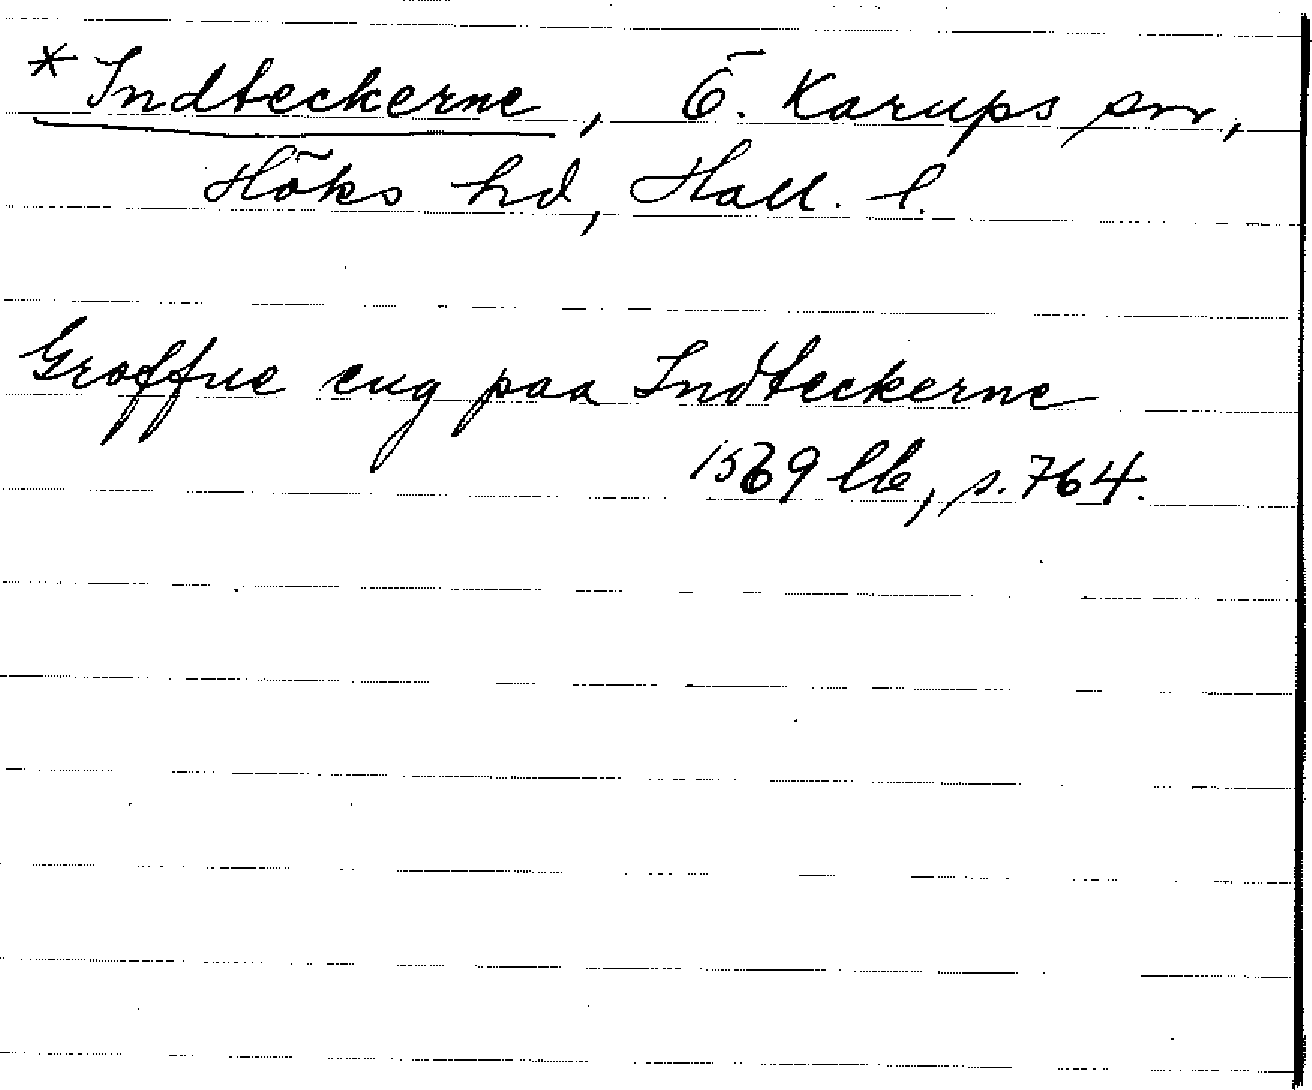 *Indteckerne, Ö. Karups sn,
Höks hd, Hall. l.
Groffue eng paa Indteckerne
1569 lb, s. 764.